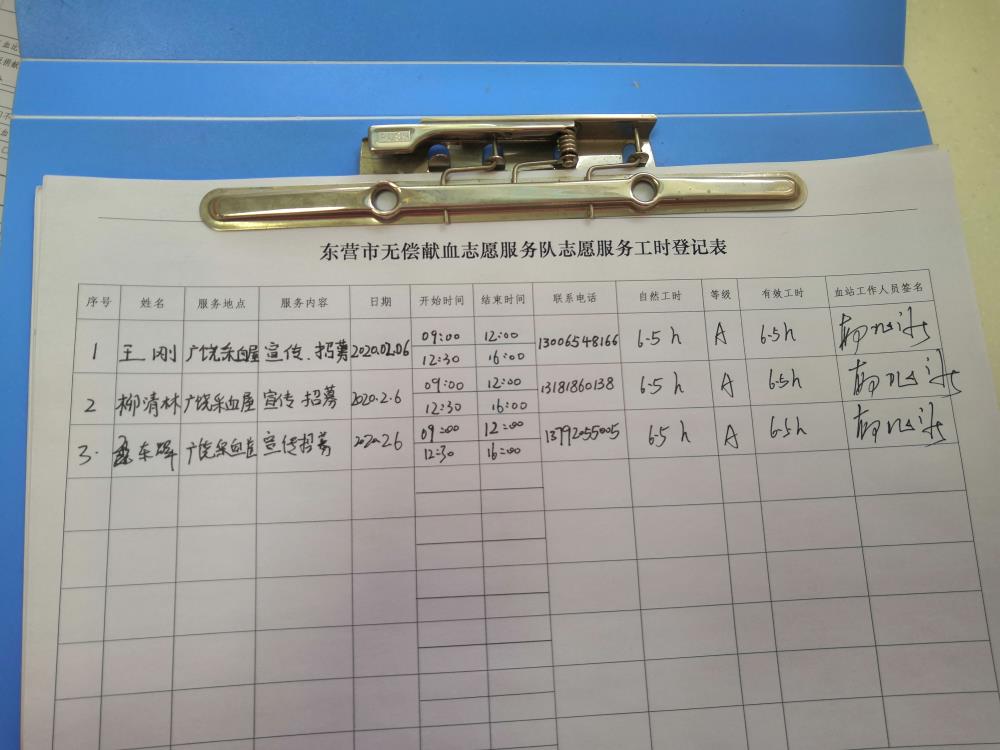 东营市无偿献血志愿服务队志愿服务工时登记表
序号 姓名 服务地点 服务内容 日期 开始时间 结束时间 联系电话 自然工时 等级 有效工时 血站工作人员签名
1 王刚 广饶采血屋 宣传.招募 2020.02.06 09:00 12:00 13006548166 6.5h A 6.5h
12:30 16:00
2 柳清林 广饶采血屋 宣传 招募 2020.2.6 09:00 12:00 13181860138 6.5h A 6.5h
12:30 16:00
3. 东辉 广饶采血屋 宣传招募 2020.2.6 09:00 12:00 13792055005 6.5h A 6.5h
12:30 16:00